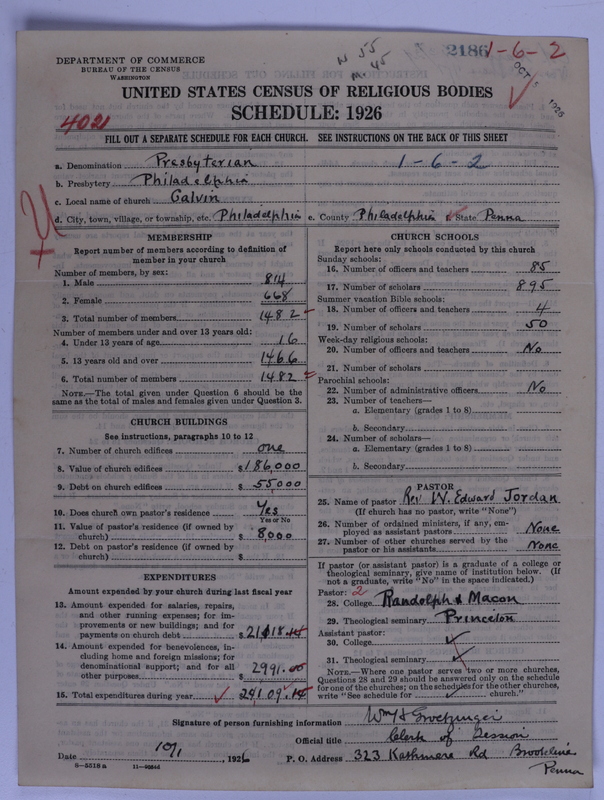 N 55
M 45
2186
1-6-2
OCT 1926
DEPARTMENT OF COMMERCE
BUREAU OF THE CENSUS
WASHINGTON
UNITED STATES CENSUS OF RELIGIOUS BODIES
SCHEDULE: 1926
4021
FILL OUT A SEPARATE SCHEDULE FOR EACH CHURCH. SEE INSTRUCTIONS ON THE BACK OF THIS SHEET
a. Denomination Presbyterian 1-6-2
b. Presbytery Philadelphia
c. Local name of church Calvin
d. City, town, village, or township, etc. Philadelphia e. County Philadelphia f. State Penna
MEMBERSHIP
Report number of members according to definition of
member in your church
Number of members, by sex:
1. Male 814
2. Female 668
3. Total number of members 1482
Number of members under and over 13 years old:
4. Under 13 years of age 16
5. 13 years old and over 1466
6. Total number of members 1482
NOTE.—The total given under Question 6 should be
same as the total of males and females given under Question 3.
CHURCH BUILDINGS
See instructions, paragraphs 10 to 12
7. Number of church edifices one
8. Value of church edifices $186,000
9. Debt on church edifices $55,000
10. Does church own pastor's residence Yes
Yes or No
11. Value of pastor's residence (if owned by
church) $8,000
12. Debt on pastor's residence (if owned by
church) $
EXPENDITURES
Amount expended by your church during last fiscal year
13. Amount expended for salaries, repairs,
and other running expenses; for im-
provements or new buildings; and for
payments on church debt $
14. Amount expended for benevolences, in-
cluding home and foreign missions; for
denominational support; and for all
other purposes $2991.00
15. Total expenditures during year $
CHURCH SCHOOLS
Report here only schools conducted by this church
Sunday schools:
16. Number of officers and teachers 85
17. Number of scholars 895
Summer vacation Bible schools:
18. Number of officers and teachers 4
19. Number of scholars 50
Week-day religious schools:
20. Number of officers and teachers No
21. Number of scholars
Parochial schools:
22. Number of administrative officers No
23. Number of teachers—
a. Elementary (grades 1 to 8)
b. Secondary
24. Number of scholars—
a. Elementary (grades 1 to 8)
b. Secondary
PASTOR
25. Name of pastor Rev W. Edward Jordan
(If church has no pastor, write "None")
26. Number of ordained ministers, if any, em-
ployed as assistant pastors None
27. Number of other churches served by the
pastor or his assistants None
If pastor (or assistant pastor) is a graduate of a college or
theological seminary, give name of institution below. (If
not a graduate, write "No" in the space indicated.)
Pastor: 2
28. College Randolph & Macon
29. Theological seminary Princeton
Assistant pastor:
30. College
31. Theological seminary
NOTE.—Where one pastor serves two or more churches,
Questions 28 and 29 should be answered only on the schedule
for one of the churches; on the schedules for the other churches,
write "See schedule for church."
Signature of person furnishing information Wm H Groetzinger
Official title Clerk of Session
Date 10/1, 1926 P. O. Address 323 Kathmere Rd Brookline
Penna
8-5518a